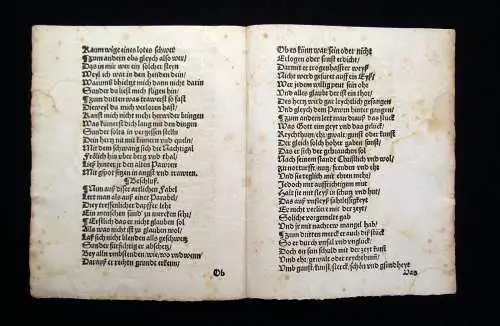 Kaum wüge eines lotes schwer
Zum andern obs gleych also wer/
Das in mir wer ein solcher steyn
Weyl ich was in den henden dein/
Warumb bhielst mich dann nicht darin
Sunder du liest mich fligen hin/
Zum dritten was trawrest so fast
Dieweyl du mich verloren hast/
Kanst mich nicht nicht herwider bringen
Was kümerst dich lang mit den dingen
Sunder solts in vergessen stelln
Den hertz nit mit kümern und queln/
Mit dem schwang sich die Nachtigal
Frölich hin uber berg und thal/
Ließ hinter jr den alten Pawren
Mit spot sitzen in angst und trawren.
Beschluß.
Nun auß diser artlichen Fabel
Lert man als auß einer Parabel/
Drey treffenlicher dapffer lehr
Ein menschen sind zu mercken sehr/
Erstlich das er nicht glauben sol
Alls was nicht ist zu glauben wol/
Laß sich nicht blenden alls geschwetz
Sunder fürsichtig er abschetz/
Bey alln umbstenden/wie/wo und wenn/
Darauß er rechten grundt erkenn/
Ob
Ob es künn war sein oder nicht
Erlogen oder sunst erdicht/
Darmit er trogenhaffter weyß
Nicht werd gefürt auff ein Eyß/
Wer jedem willig thut sein ohr
Und alles glaubt der ist ein thor/
Des hertz wird gar leychtlich gefangen
Und gleych dem Pawrn hinter gangen/
Zum andern lert man drauß das stück
Was Gott ein geyt und das gelück/
Reychthum/ehr/gwalt/gunst oder kunst
Der gleich solch hoher gaben sunst/
Das er sich der gebrauchen sol
Nach seinem standt Christlich und wol/
zu notturfft/nutz/frewden und ehr
Und sie teglich mit ehren mehr/
Jedoch mit auffrichtigem mut
Halt sie mit fleyß in schutz und hut/
Das auß unfleyß fahrlessigkeyt
Er nicht verlier mit der zeyt/
Solliche vorgemelt gab
Und je mit nachrew mangel hab/
Zum dritten merck er auch diß stück
So er durch unfal und unglück/
Doch on sein schuld mit der zeyt kumt
Umb ehr/gewalt oder reychthumb/
Umb gunst/kunst/sterck/schön und gsundheyt
Das